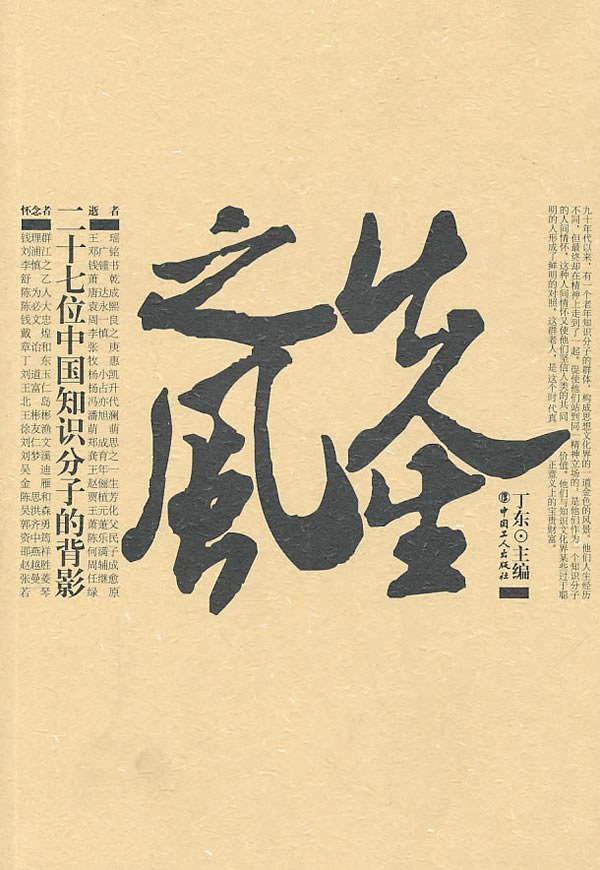 九十年代以来，有一个老年知识分子的群体，构成思想文化界的一道金色的风景。他们人生经历
不同，但最终却在精神上走到了一起。促使他们站到同一精神立场的，是他们作为一个知识分子
的人间情怀，这种人间情怀又使他们坚信人类的共同价值。他们与知识文化界某些过于聪
明的人形成了鲜明的对照。这群老人，是这个时代真正意义上的宝贵财富。
先生
之風
丁东⊙主编
中国工人出版社
逝者
王瑶
邓广铭
钱锺书
萧乾
唐达成
袁永熙
周一良
李慎之
张庚
牧惠
杨小凯
杨占升
冯亦代
潘旭澜
萌萌
郑成思
龚育之
王年一
赵俪生
贾植芳
王元化
萧萐父
陈乐民
何满子
周辅成
任继愈
绿原
二十七位中国知识分子的背影
怀念者
钱理群
刘浦江
李慎之
舒乙
陈为人
陈必大
钱文忠
戴煌
章诒和
丁东
刘道玉
王富仁
北岛
王彬彬
徐友渔
刘仁文
刘梦溪
吴迪
金雁
陈思和
吴洪森
郭齐勇
资中筠
邵燕祥
赵越胜
张曼菱
若琴